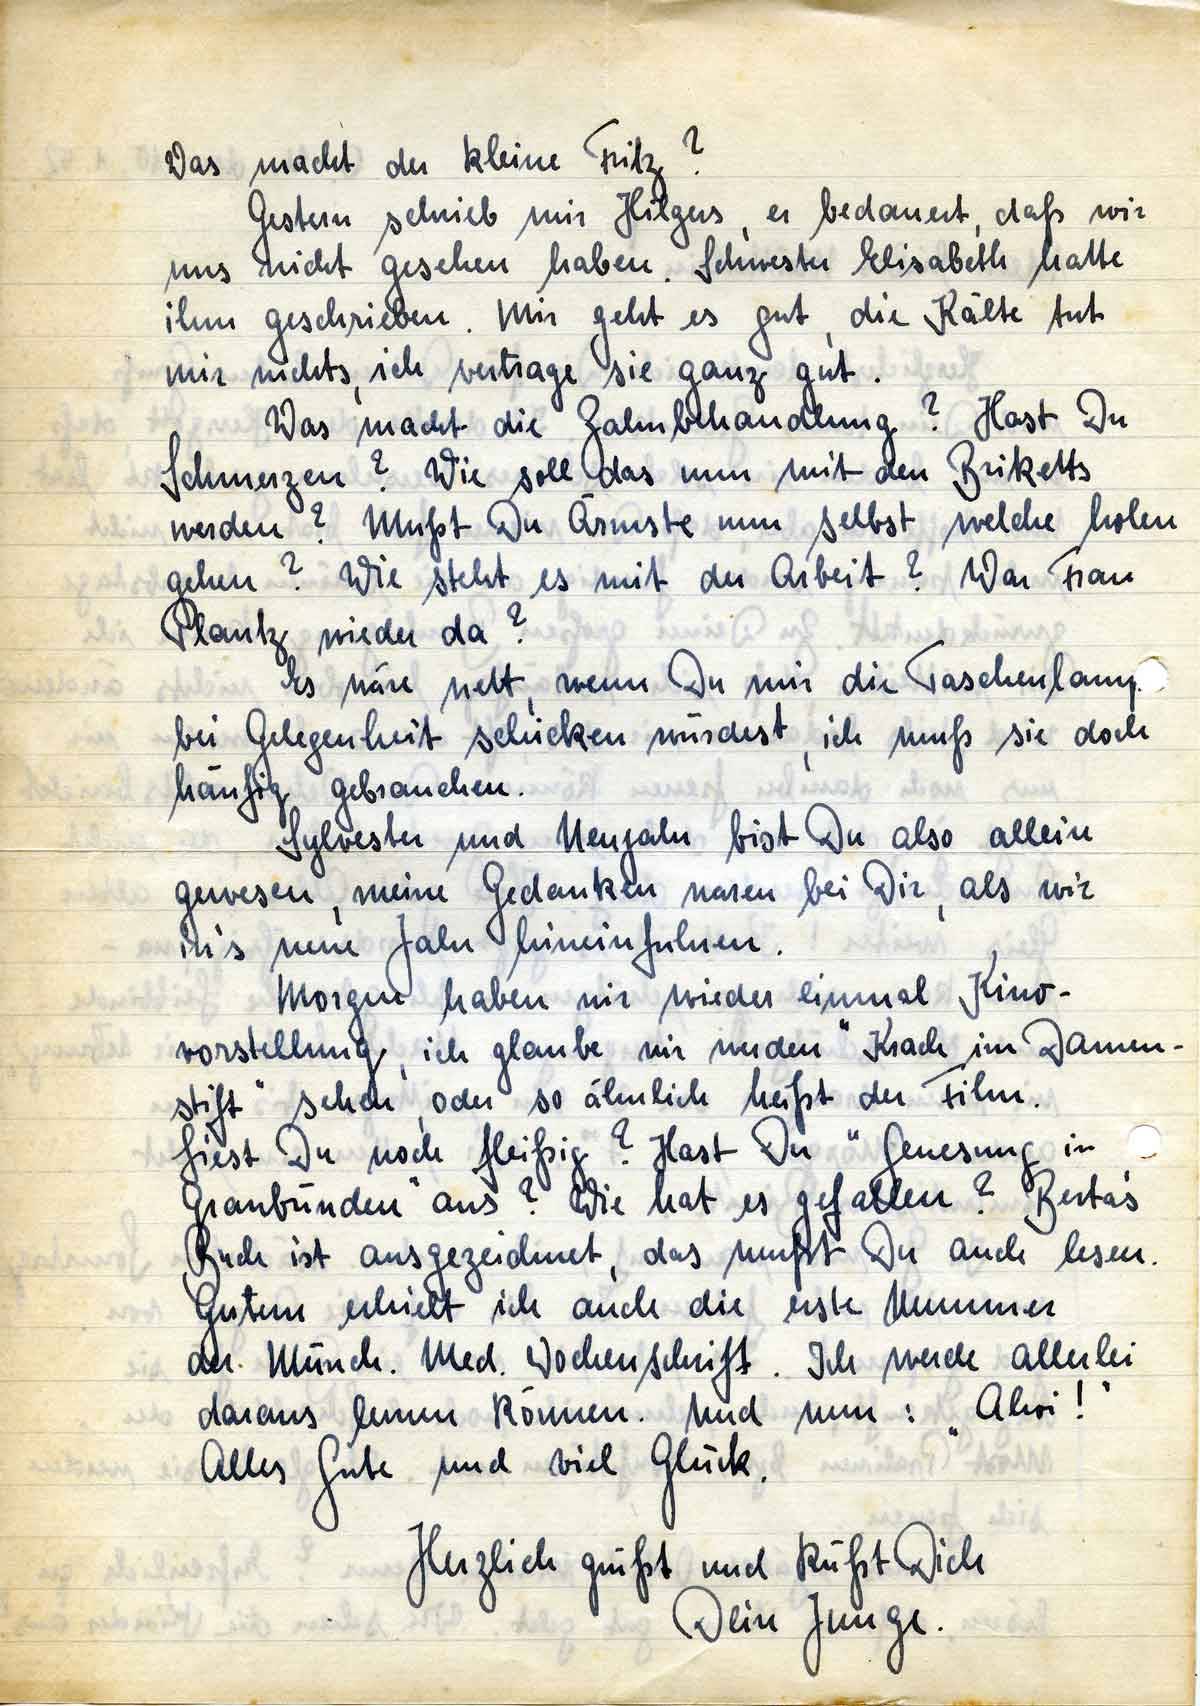 Was macht der kleine Fritz?
Gestern schrieb mir Hilgers, er bedauert, daß wir
uns nicht gesehen haben. Schwester Elisabeth hatte
ihm geschrieben. Mir geht es gut, die Kälte tut
mir nichts, ich vertrage sie ganz gut.
Was macht die Zahnbehandlung? Hast Du
Schmerzen? Wie soll das nun mit den Briketts
werden? Mußt Du Ärmste nun selbst welche holen
gehen? Wie steht es mit der Arbeit? War Frau
Plantz wieder da?
Es wäre nett, wenn Du mir die Taschenlamp
bei Gelegenheit schicken würdest, ich muß sie doch
häufig gebrauchen.
Sylvester und Neujahr bist Du also allein
gewesen, meine Gedanken waren bei Dir, als wir
in's neue Jahr hineinfuhren.
Morgen haben wir wieder einmal Kino-
vorstellung, ich glaube wir werden "Krach im Damen-
stift" sehen, oder so ähnlich heißt der Film.
Liest Du noch fleißig? Hast Du "Genesung in
Graubünden" aus? Wie hat es gefallen? Berta's
Buch ist ausgezeichnet, das mußt Du auch lesen.
Gestern erhielt ich auch die erste Nummer
der Münch. Med. Wochenschrift. Ich werde allerlei
daraus lernen können. Und nun: "Ahoi!"
Alles Gute und viel Glück.
Herzlich grüßt und küßt Dich
Dein Junge.